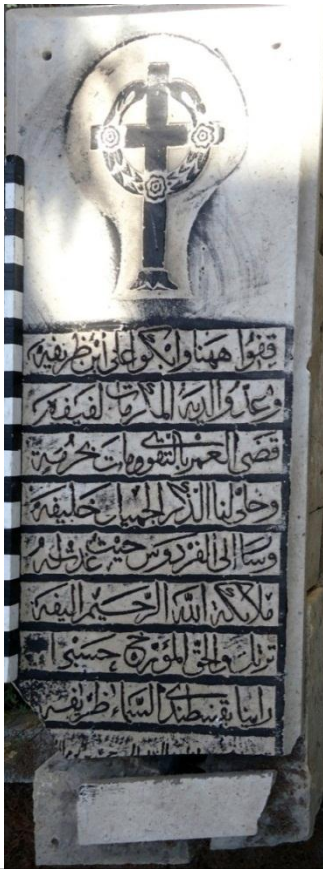 قفوا ههنا وابكوا على ابن ظريفه
وعدوا لديه المكرمات لفيفه
قضى العمر بالتقوى ومات بحرمة
وخلى لنا الذكر الجميل خليفه
وسا الى الفردوس حيث غدت له
ملائكة الله الرحيم اليفه
ترتل والحق المؤرخ حسبنا
راينا بقسطندي السناء ظريفه